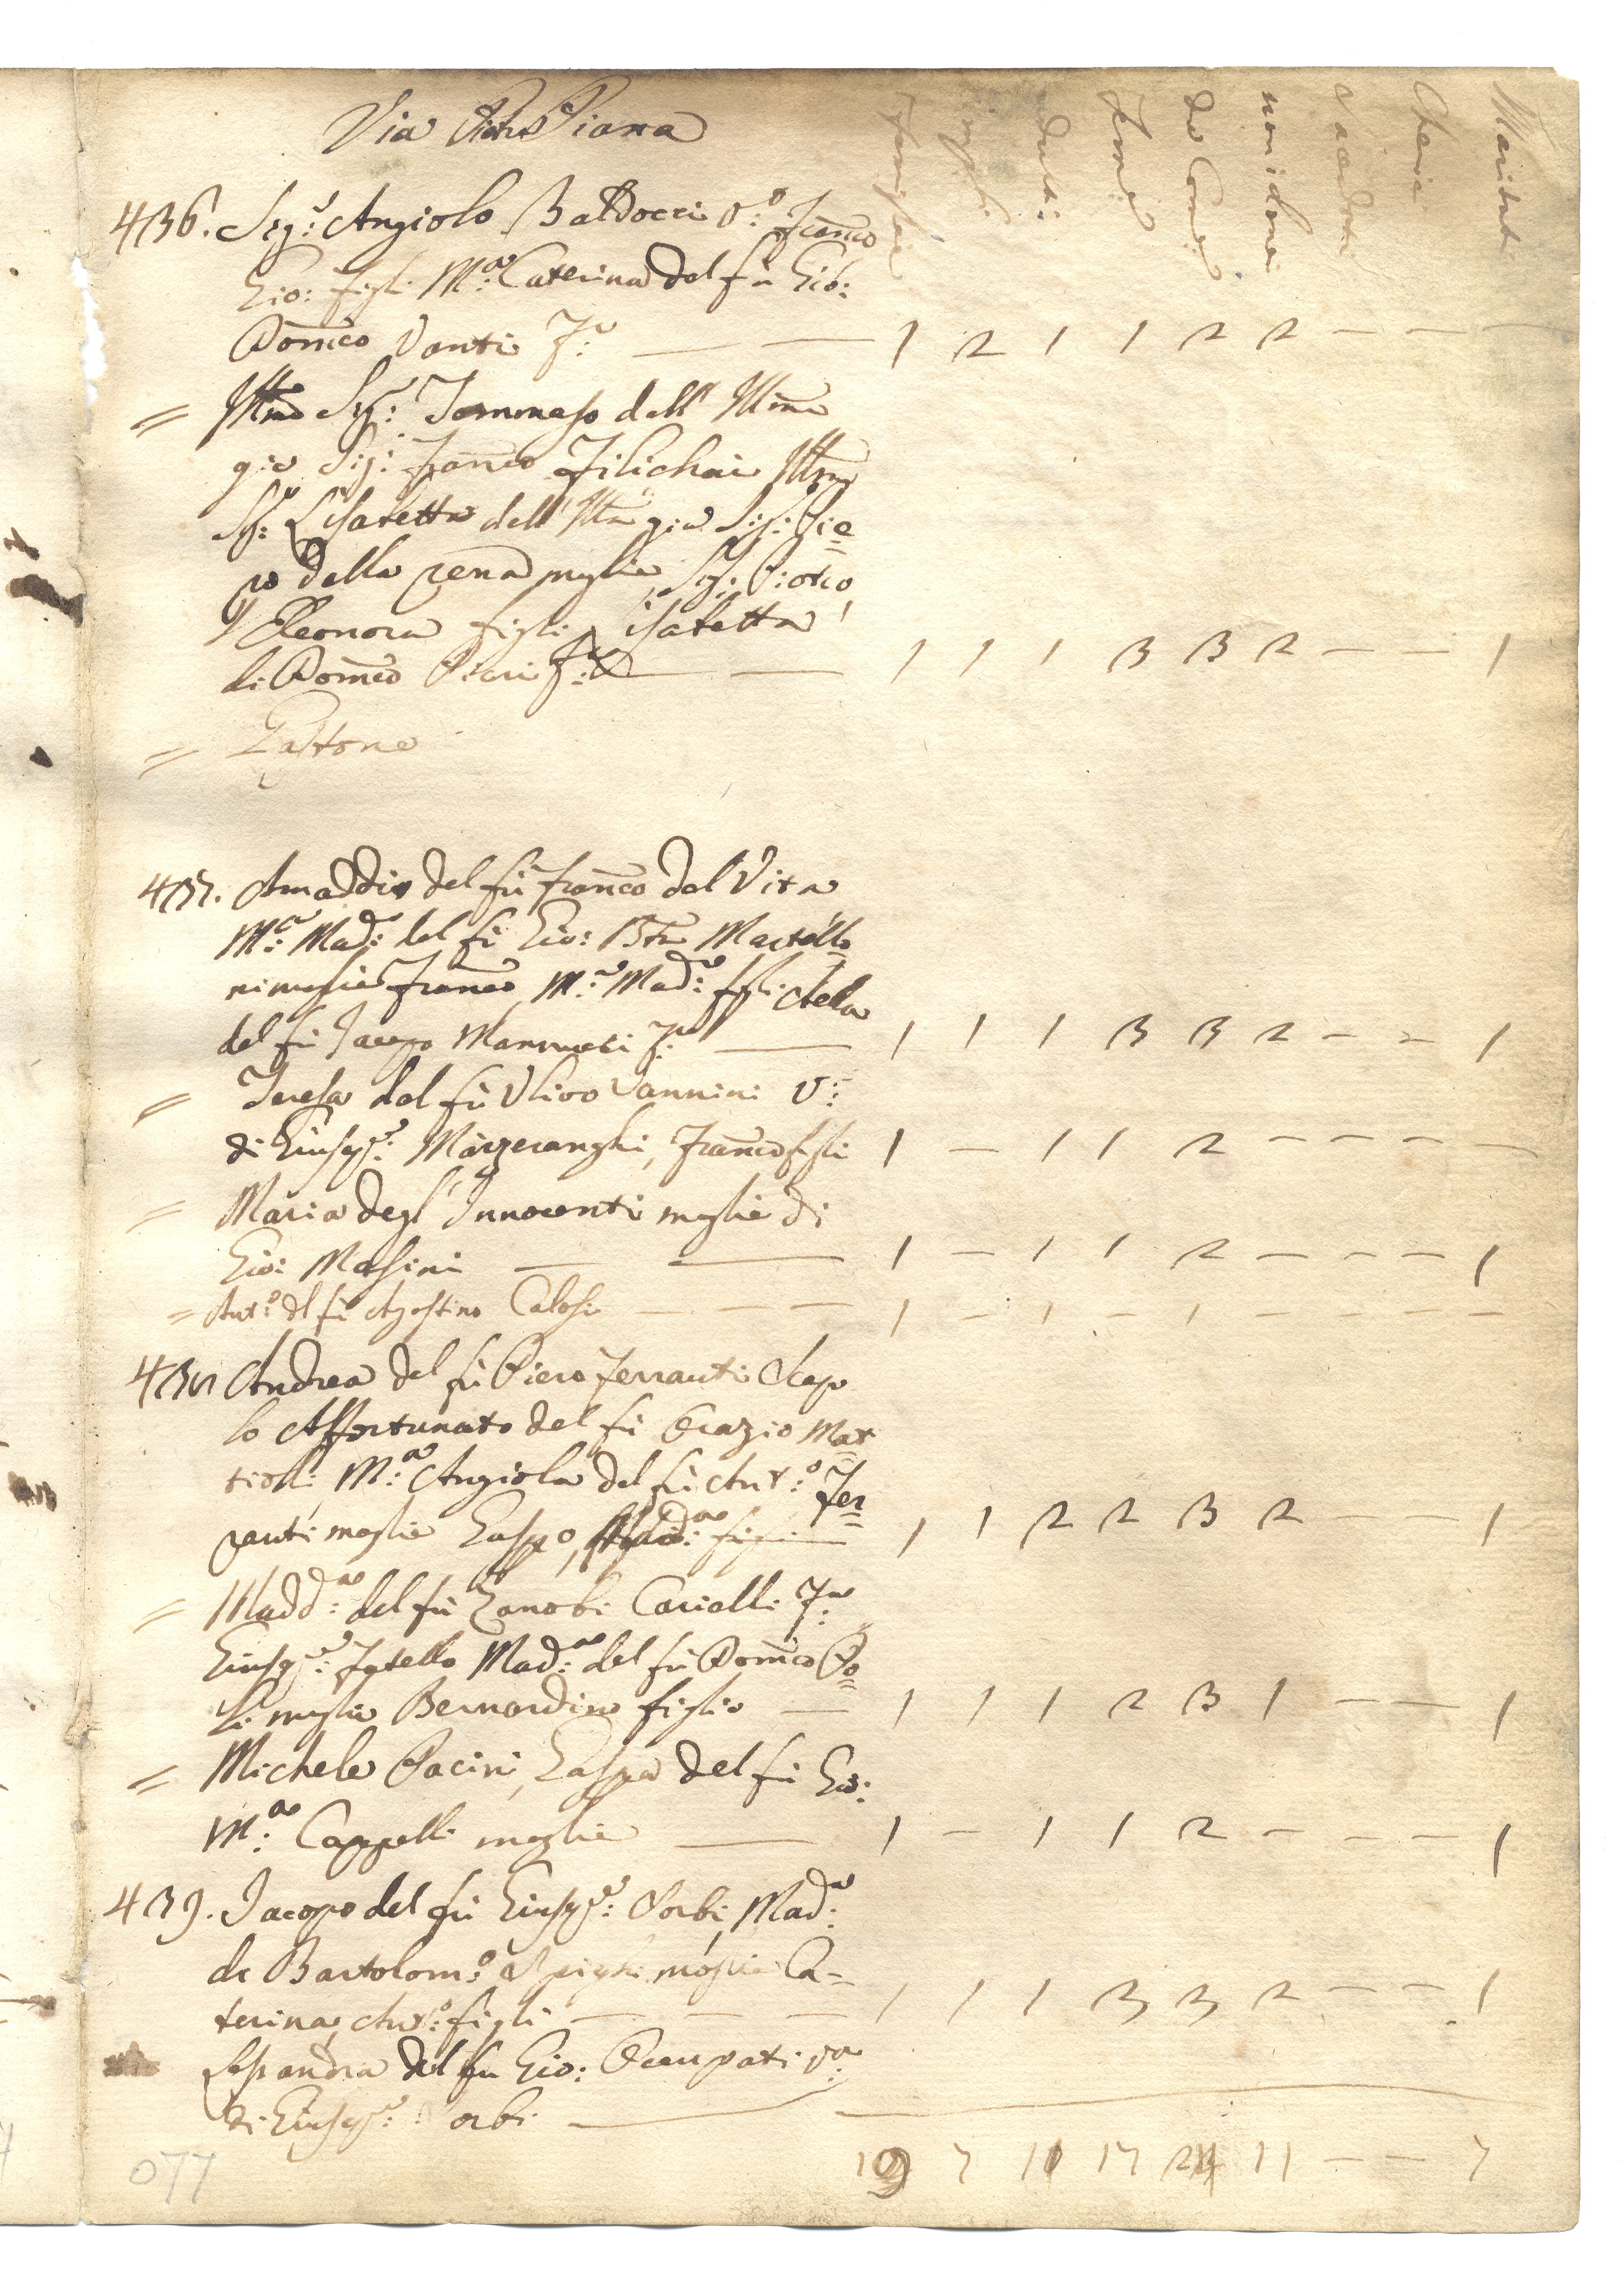 Via Piana
Famiglie
Ragli
Adulti:
Femine
Da Comu:
non idonei
Sacerdoti
Cherici
Maritati
436. Sig:r Angiolo Baldocci V:o Franco
Gio: figli M:a Caterina del fù Gio:
Domco Vanti F:a — — 1 2 1 1 2 2 — — —
= Illmo Sig:r Tommaso dell' Illmo
già Sig: Franco Filichai Illma
Sig:a Lisabetta dell' Illmo già Sig: Pie=
ro della rena moglie Sig:
Eleonora figli Lisabetta
di Domco Pieri F:a — — 1 1 1 3 3 2 — — 1
= Pastone
437. Amaddio del fù Franco del Vita
M:a Mad:a del fù Gio: Bta Martelli
ni moglie Franco M:a Mad:a figli
del fù Jacopo Mannucci F:a — 1 1 1 3 3 2 — — 1
= Teresa del fù Ulivo Vannini V:
di Giusep:e Marzeranghi, Franco figli 1 — 1 1 2 — — — —
= Maria degl' Innocenti moglie di
Gio: Masini — — 1 — 1 1 2 — — — 1
= Ant:o del fù Agostino Calosi — — — 1 — 1 — 1 — — — —
438 Andrea del fù Piero Ferranti Scapo
lo Affortunato del fù Orazio Mat
tioli, M:a Angiola del fù Ant:o Fer=
ranti moglie Gaspo, figli — 1 1 2 2 3 2 — — 1
= Madd:a del fù Zanobi Carielli F:a
Giusep:e fratello Mad:a del fù Domco Po=
li moglie Bernardino figlio — 1 1 1 2 3 1 — — 1
= Michele Pacini, Gaspa del fù Gio:
M:a Cappelli moglie — 1 — 1 1 2 — — — 1
439. Jacopo del fù Giusep:e Sorbi, Mad:a
di Bartolom:o moglie Ca=
terina, Ant:o figli — — — 1 1 1 3 3 2 — — 1
Lessandra del fù Gio: Occupati v:a
di Giusep:e Sorbi —
077
10 9 7 11 17 24 11 — — 7